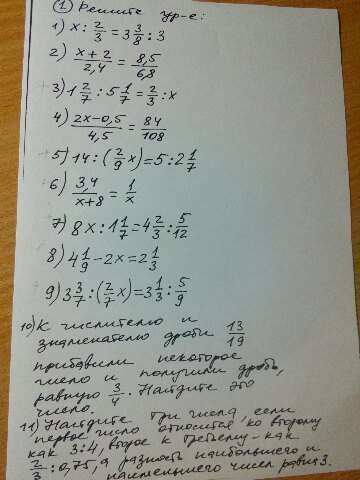 ① Решите ур-е:
1) x : 2/3 = 3 3/8 : 3
2) (x+2)/2,4 = 8,5/6,8
3) 1 2/7 : 5 1/7 = 2/3 : x
4) (2x-0,5)/4,5 = 84/108
5) 14 : (2/9 x) = 5 : 2 1/7
6) 3,4/(x+8) = 1/x
7) 8x : 1 1/7 = 4 2/3 : 5/12
8) 4 1/9 - 2x = 2 1/3
9) 3 3/7 : (2/7 x) = 3 1/3 : 5/9
10) К числителю и
знаменателю дроби 13/19
прибавили некоторое
число и получили дробь,
равную 3/4. Найдите это
число.
11) Найдите три числа, если
первое число относится ко второму
как 3:4, второе к третьему - как
2/3 : 0,75, а разность наибольшего и
наименьшего чисел равна 3.